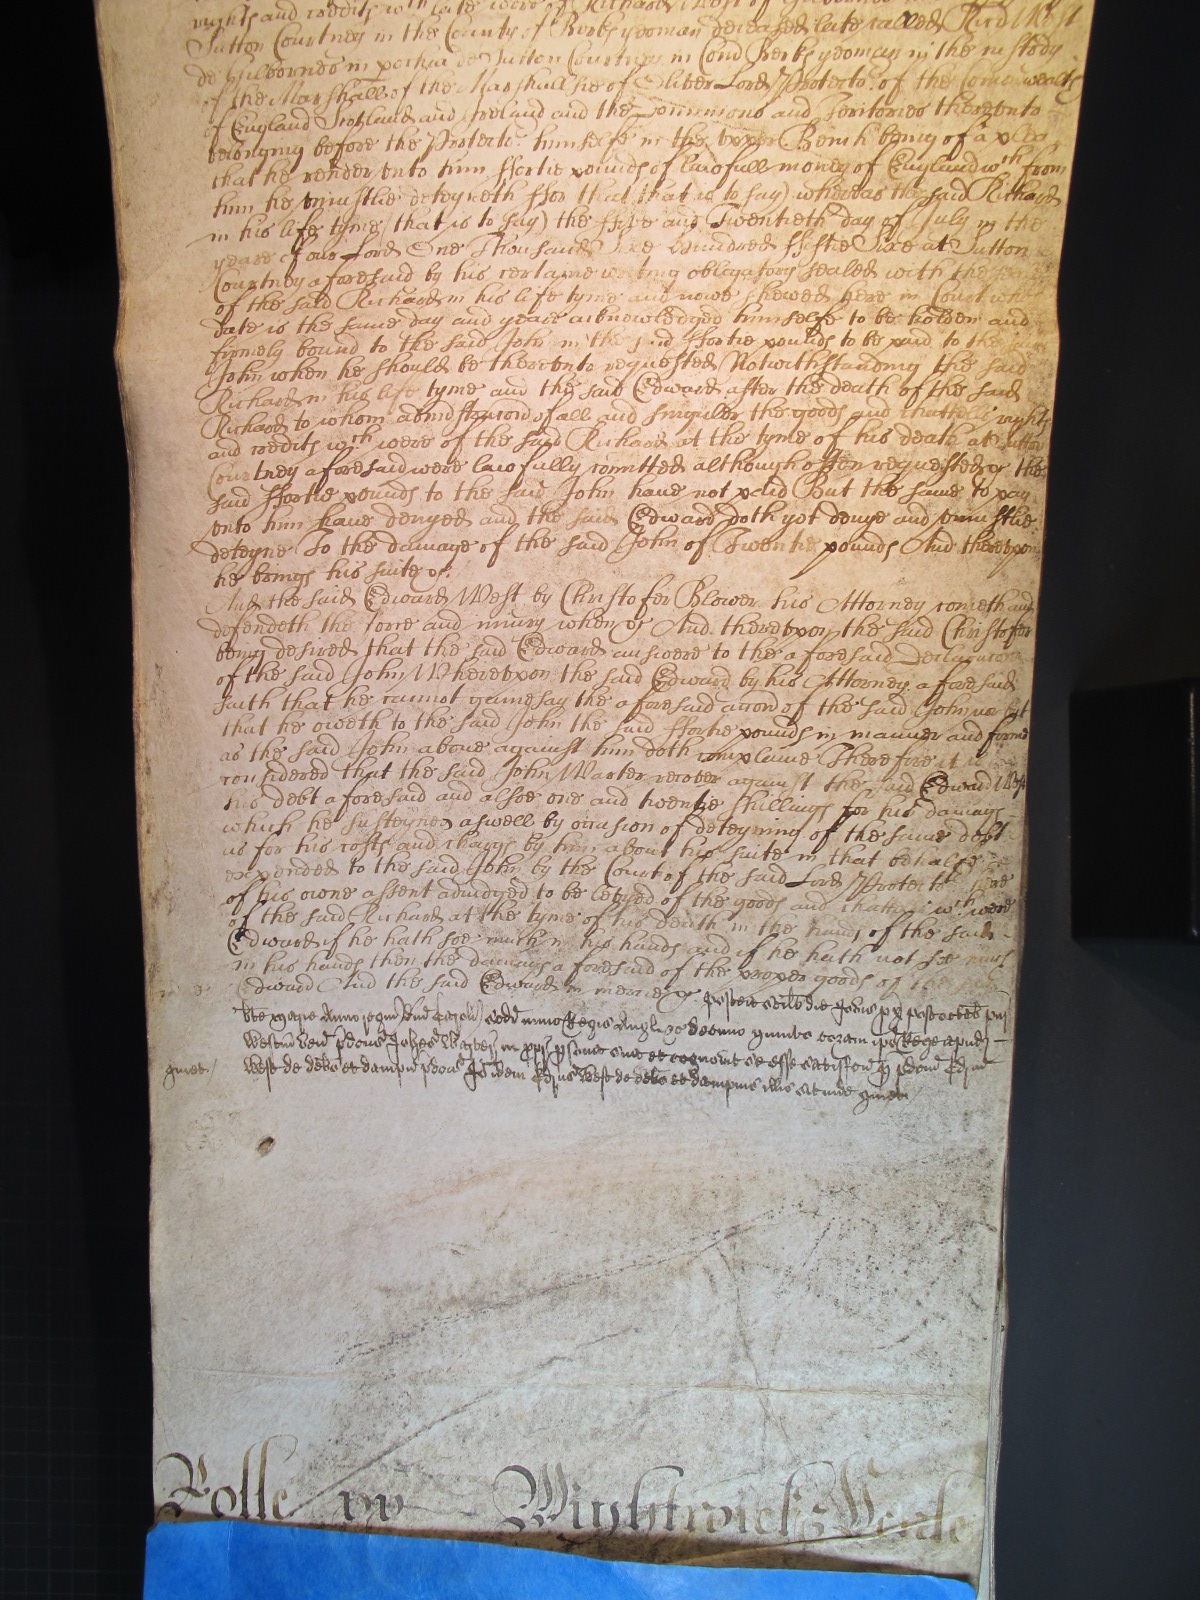 rights and credits wch late were of Richard West of
Sutton Courtney in the County of Berks yeoman deceased late called Richd West
de Milborne in parchia de Sutton Courtney in Com Berks yeoman in the custody
of the Marshall of the Marshallsie of Oliver Lord Protector of the Comonwealth
of England Scotland and Ireland and the Dominions and Teritories thereunto
belonging before the Protector himselfe in the upper Bench being of a plea
that he render unto him ffortie pounds of lawfull money of England wch from
him he uniustlie deteyneth ffor that (that is to say) whereas the said Richard
in his life tyme (that is to say) the ffive and Twentieth day of July in the
yeare of our Lord One Thousand Sixe hundred ffiftie Sixe at Sutton
Courtney aforesaid by his certaine writing obligatory sealed with the seale
of the said Richard in his life tyme and nowe shewed here in Court whose
date is the same day and yeare acknowledged himselfe to be holden and
firmely bound to the said John in the said ffortie pounds to be paid to the said
John when he should be thereunto requested Notwithstanding the said
Richard in his life tyme and the said Edward after the death of the said
Richard to whom administracon of all and singuler the goods and chattells rights
and credits wch were of the said Richard at the tyme of his death at Sutton
Courtney aforesaid were lawfully comitted although often requested &c the
said ffortie pounds to the said John have not paid But the same to pay
unto him have denyed and the said Edward doth yet denye and uniustlie
deteyne To the damage of the said John of Twentie pounds And thereupon
he brings his suite &c.
And the said Edward West by Christofer Blower his Attorney cometh and
defendeth the force and iniury when &c And thereupon the said Christofer
being desired that the said Edward answere to the aforesaid Declaracon
of the said John Whereupon the said Edward by his Attorney aforesaid
saith that he cannot gainesay the aforesaid accon of the said John nor but
that he oweth to the said John the said ffortie pounds in manner and forme
as the said John above against him doth complaine Therefore it is
considered that the said John Warter recover against the said Edward West
his debt aforesaid and alsoe one and twentie shillings for his damages
which he susteyned aswell by occasion of deteyning of the same debt
as for his costs and charges by him about his suite in that behalfe
expended to the said John by the Court of the said Lord Protector here
of his owne assent adiudged to be levyed of the goods and chattells wch were
of the said Richard at the tyme of his death in the hands of the said
Edward if he hath soe much in his hands and if he hath not soe much
in his hands then the damages aforesaid of the proper goods of the said
Edward And the said Edward in mercie &c. Postea scilt die
Anno regni Dni Caroli scdi nunc Regis Angl &c decimo quinto coram ipso Rege apud
Westm ven pdcus Johes
quiet West de debo et dampn pdcis Ideo idem Edrus West de debo et dampnis illis sit inde quiet
Rolle xv Wightwick & Veale